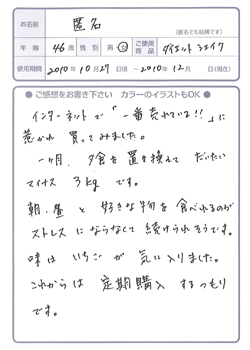 お名前 匿名
(匿名でも結構です)
年齢 46歳 性別 男・女 ご使用商品 ダイエットシェイク
使用期間 2010年10月27日頃 〜2010年12月 日(現在)
ご感想をお書き下さい カラーのイラストもOK
インターネットで「一番売れている!!」に
惹かれ 買ってみました。
一ヶ月、夕食を置き換えて だいたい
マイナス 3kgです。
朝、昼と 好きな物を食べれるのが
ストレスにならなくて 続けられそうです。
味は いちごが 気に入りました。
これからは 定期購入 するつもり
です。